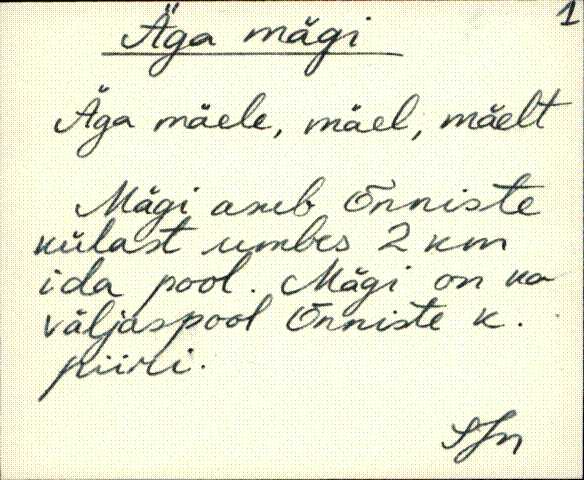 1
Äga mägi
Äga mäele, mäel, mäelt
Mägi asub Õnniste
külast umbes 2 km
ida pool. Mägi on ka
väljaspool Õnniste k.
piiri.